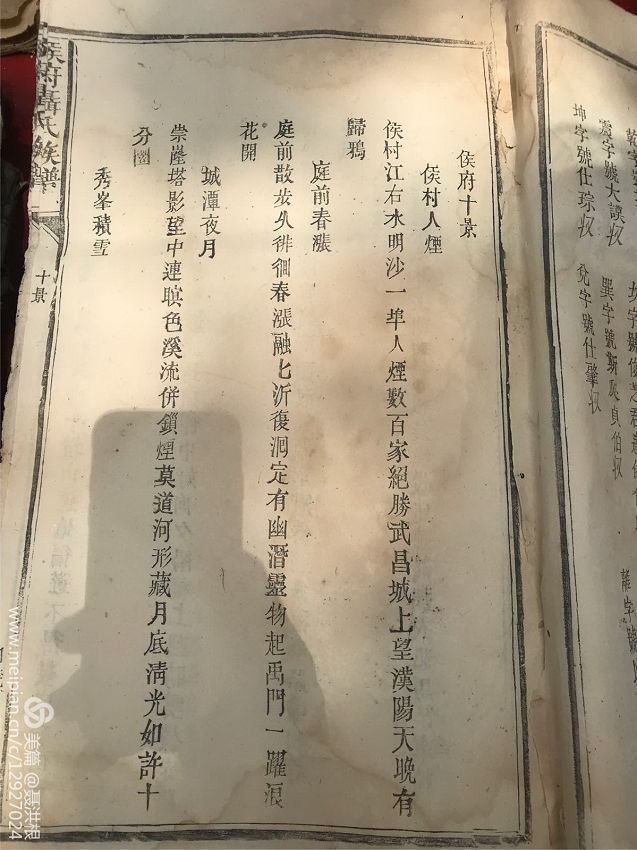 乾字
震字號大謨収
坤字號仕琮収
巽字號斯
貞伯収
兌字號仕肇収
侯府十景
侯村人煙
侯村江右水明沙一埠人煙數百家絕勝武昌城上望漢陽天晚有
歸鴉
庭前春漲
庭前散步久徘徊春漲融七沂復洄定有幽潛靈物起禹門一躍浪
花開
城潭夜月
崇崖塔影望中連暝色溪流併鎖煙莫道河形藏月底清光如許十
分圓
秀峯積雪
侯府聶氏族譜
十景
美篇@聂洪浪
www.meipian.cn/c/12927024